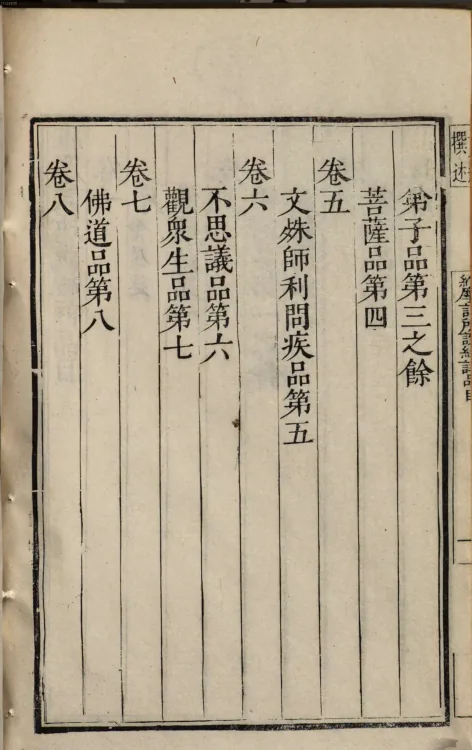 撰述
弟子品第三之餘
菩薩品第四
卷五
文殊師利問疾品第五
卷六
不思議品第六
觀衆生品第七
卷七
佛道品第八
卷八